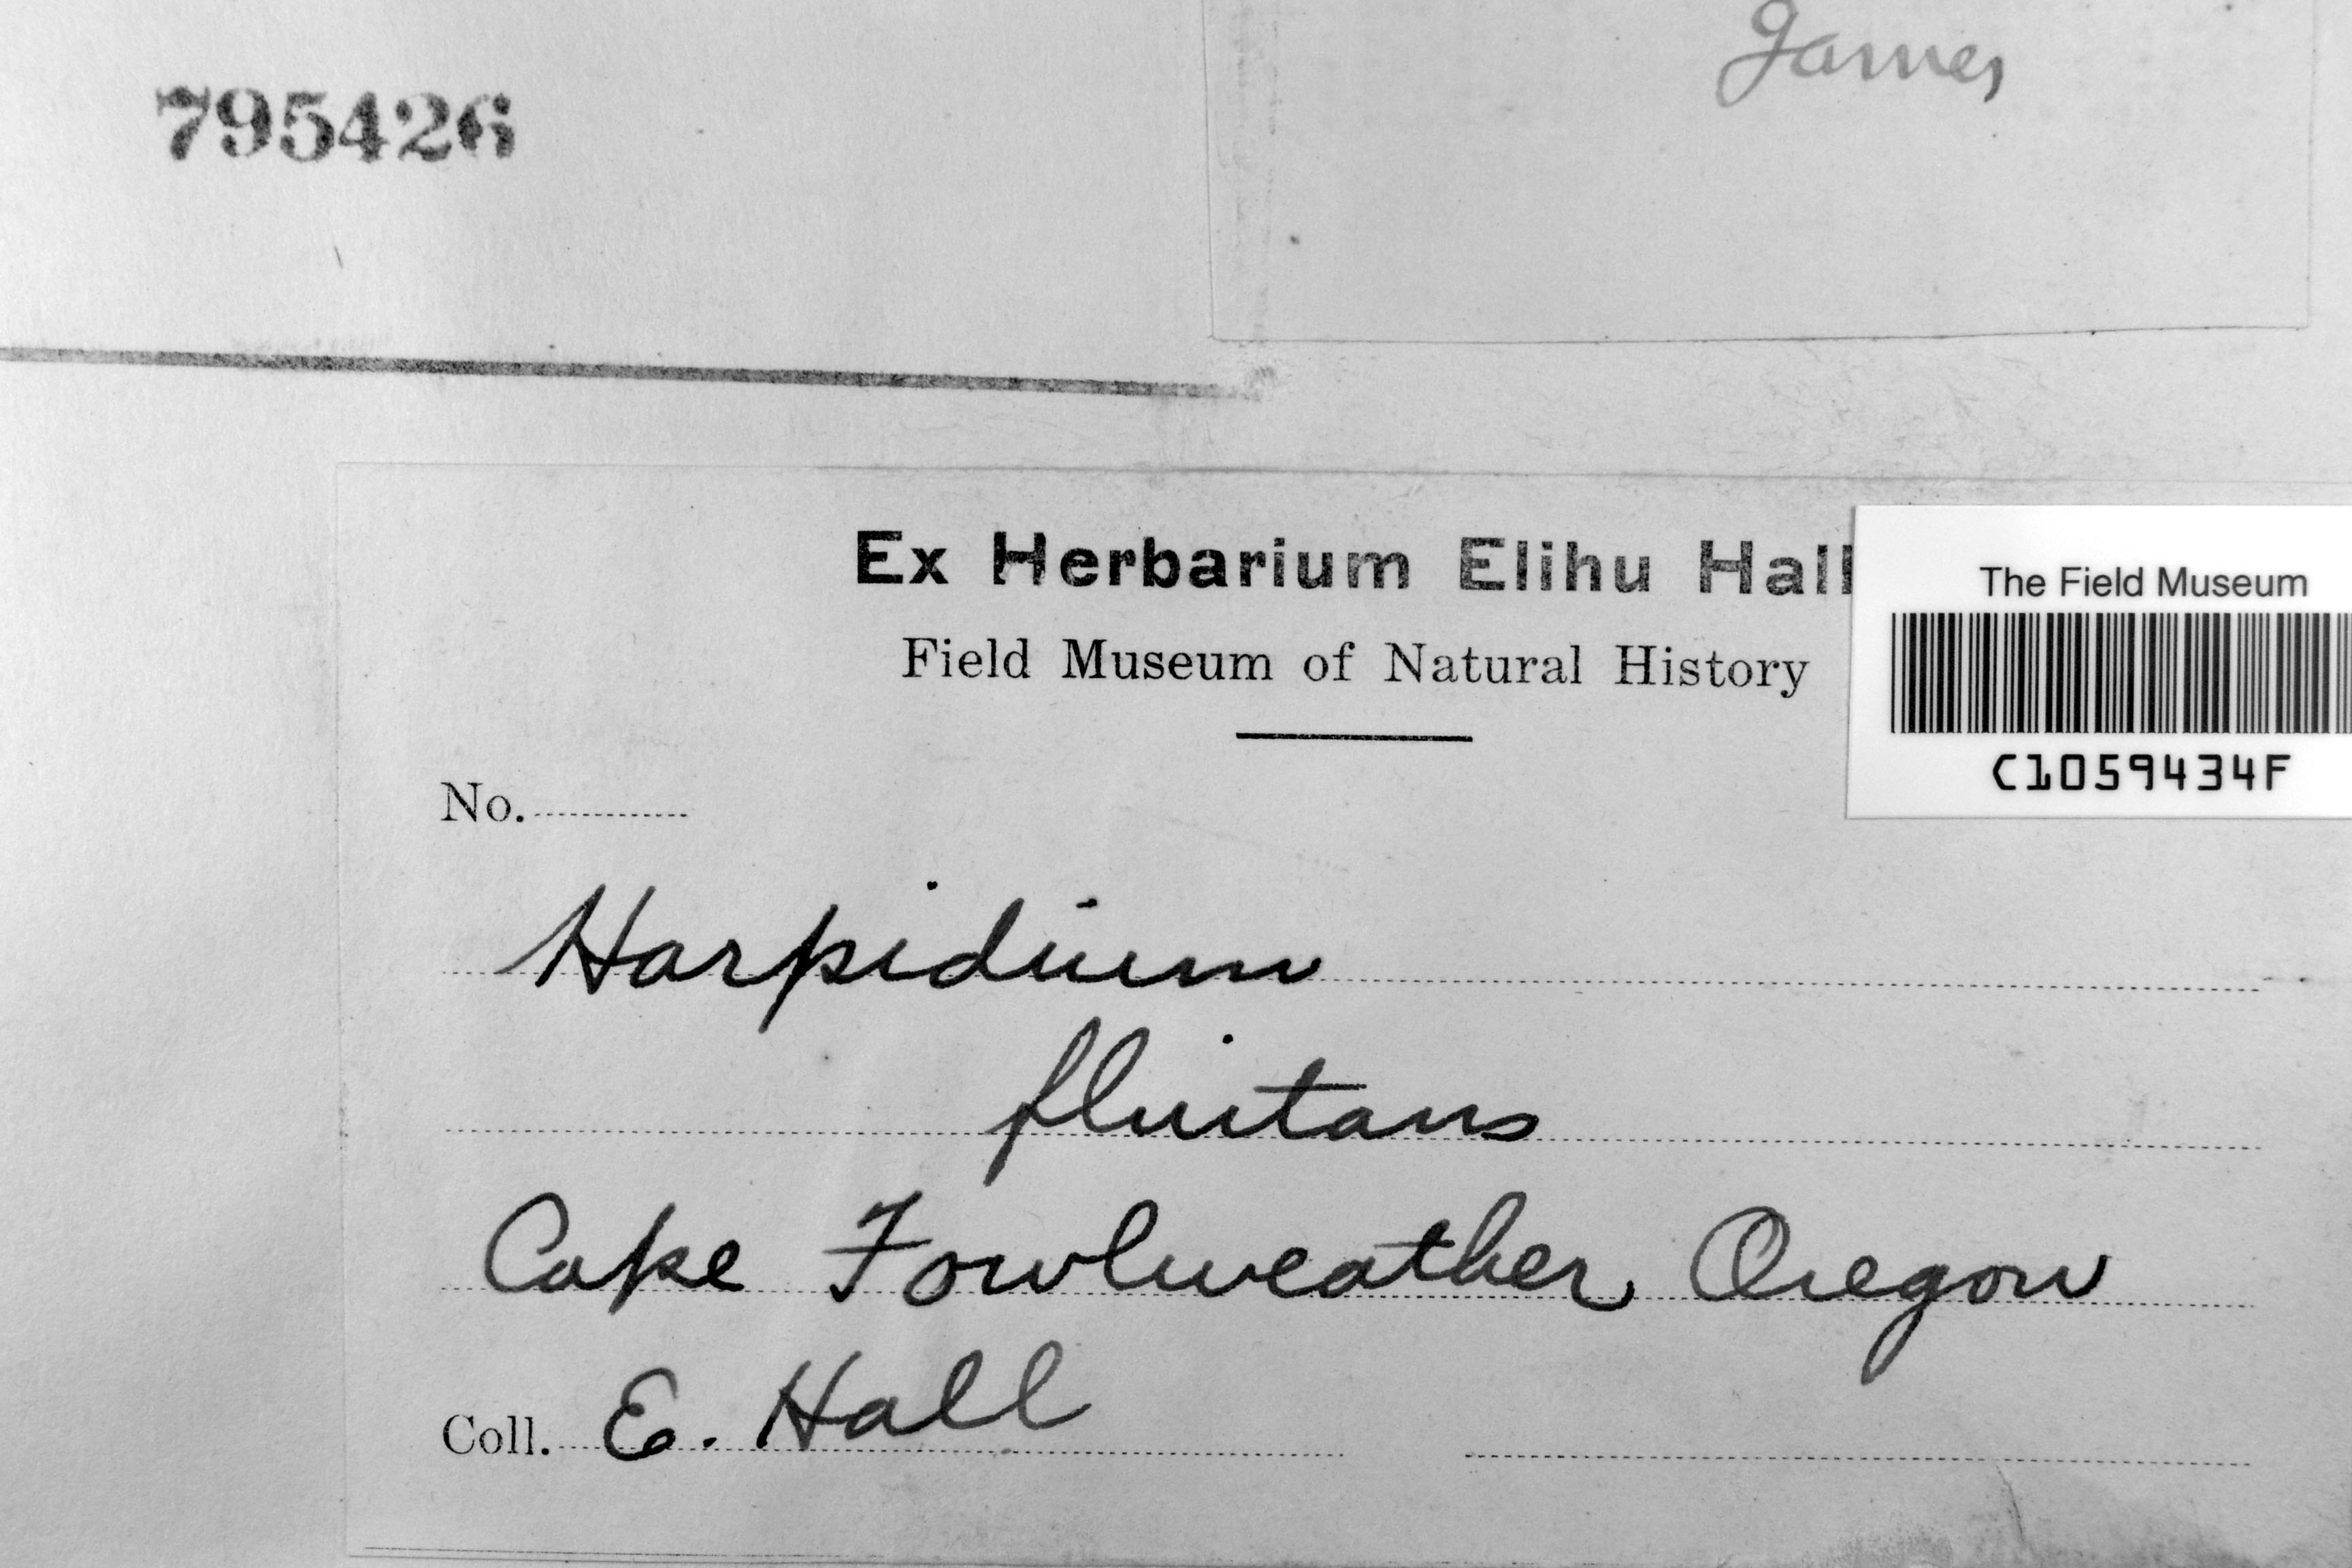 James
795426
Ex Herbarium Elihu Hall
Field Museum of Natural History
The Field Museum
C1059434F
No.
Harpidium
fluitans
Cape Fowlweather, Oregon
Coll. E. Hall